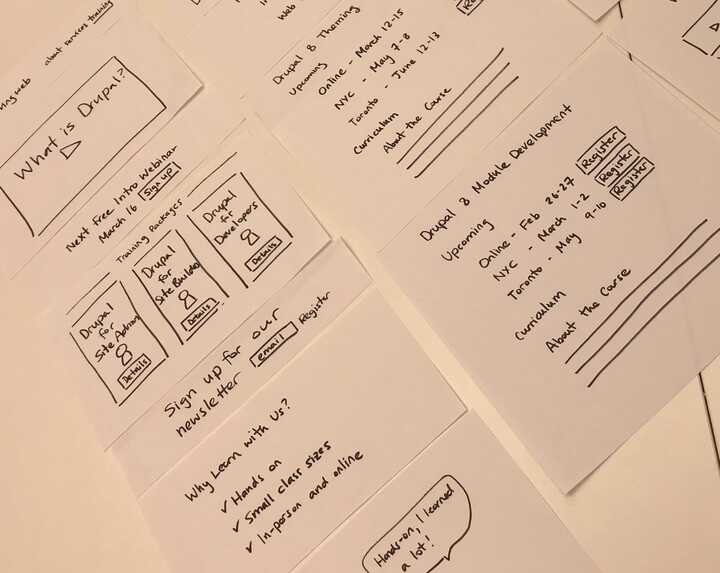 about services training
web
What is Drupal?
Next free Intro Webinar
March 16 Sign up
Training Packages
Drupal
for
Site Admin
Details
Drupal
for
Site Builder
Details
Drupal
for
Developers
Details
Sign up for our
newsletter email Register
Why Learn with Us?
✓ Hands on
✓ Small class sizes
✓ In-person and online
Hands-on, I learned
a lot!
Web
Drupal 8 Theming
Upcoming
Online - March 12-15
NYC - May 7-8
Toronto - June 12-13
Curriculum
About the Course
Drupal 8 Module Development
Upcoming
Online - Feb 26-27 Register
NYC - March 1-2 Register
Toronto - May 9-10 Register
Curriculum
About the Course